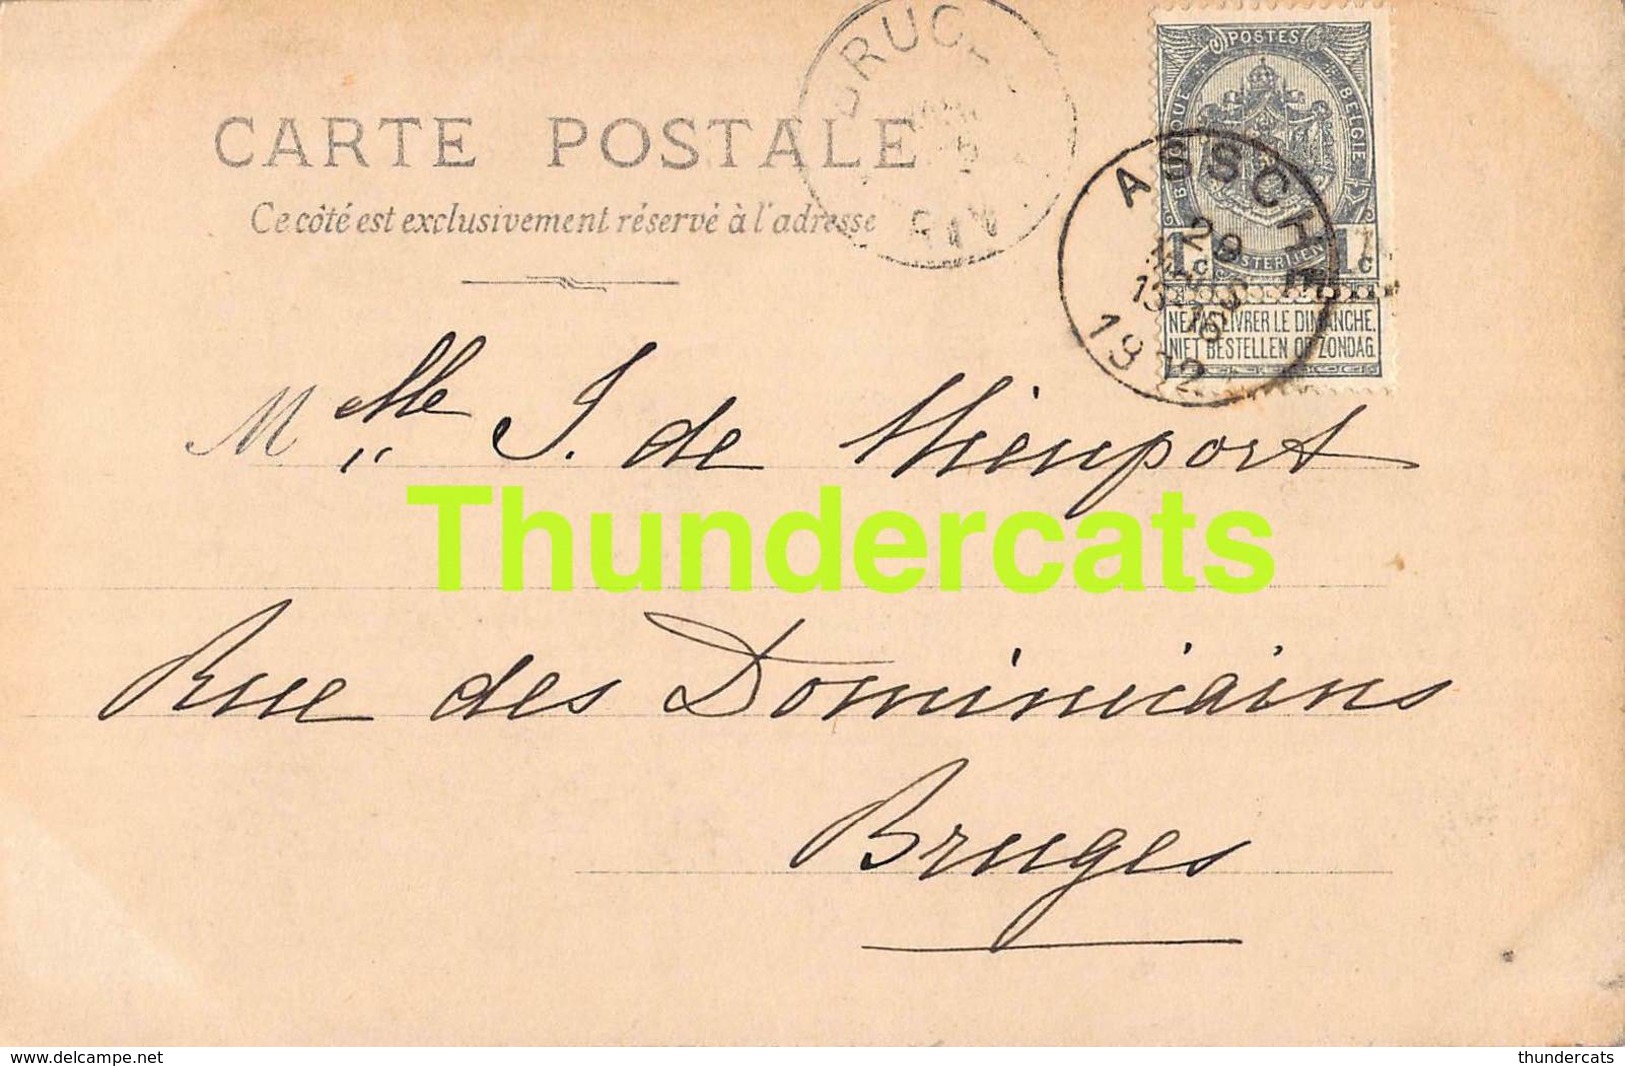 BRUG
POSTES
BELGIQUE BELGIE
ASSCHE
CARTE POSTALE
Ce côté est exclusivement réservé à l'adresse
29
1 c 1 c
1902
NE PAS LIVRER LE DIMANCHE.
NIET BESTELLEN OP ZONDAG.
Melle J. de Nieuport
Thundercats
Rue des Dominicains
Bruges
delcampe.net
thundercats